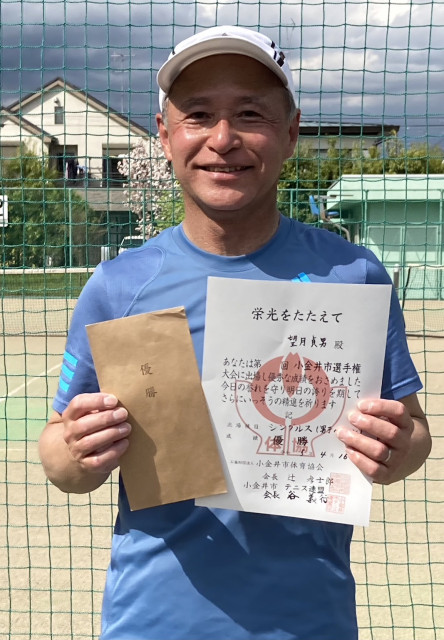 優勝
栄光をたたえて
望月貞男 殿
あなたは第 回 小金井市選手権
大会に出場し優秀な成績をおさめました
今日の栄誉を守り明日の誇りを期して
さらにいっそうの精進を祈ります
記
出場種目 シングルス(男子
成績 優勝
4 16
小金井市体育協会
会長 辻
小金井市 テニス連盟
会長 谷 義行
体協